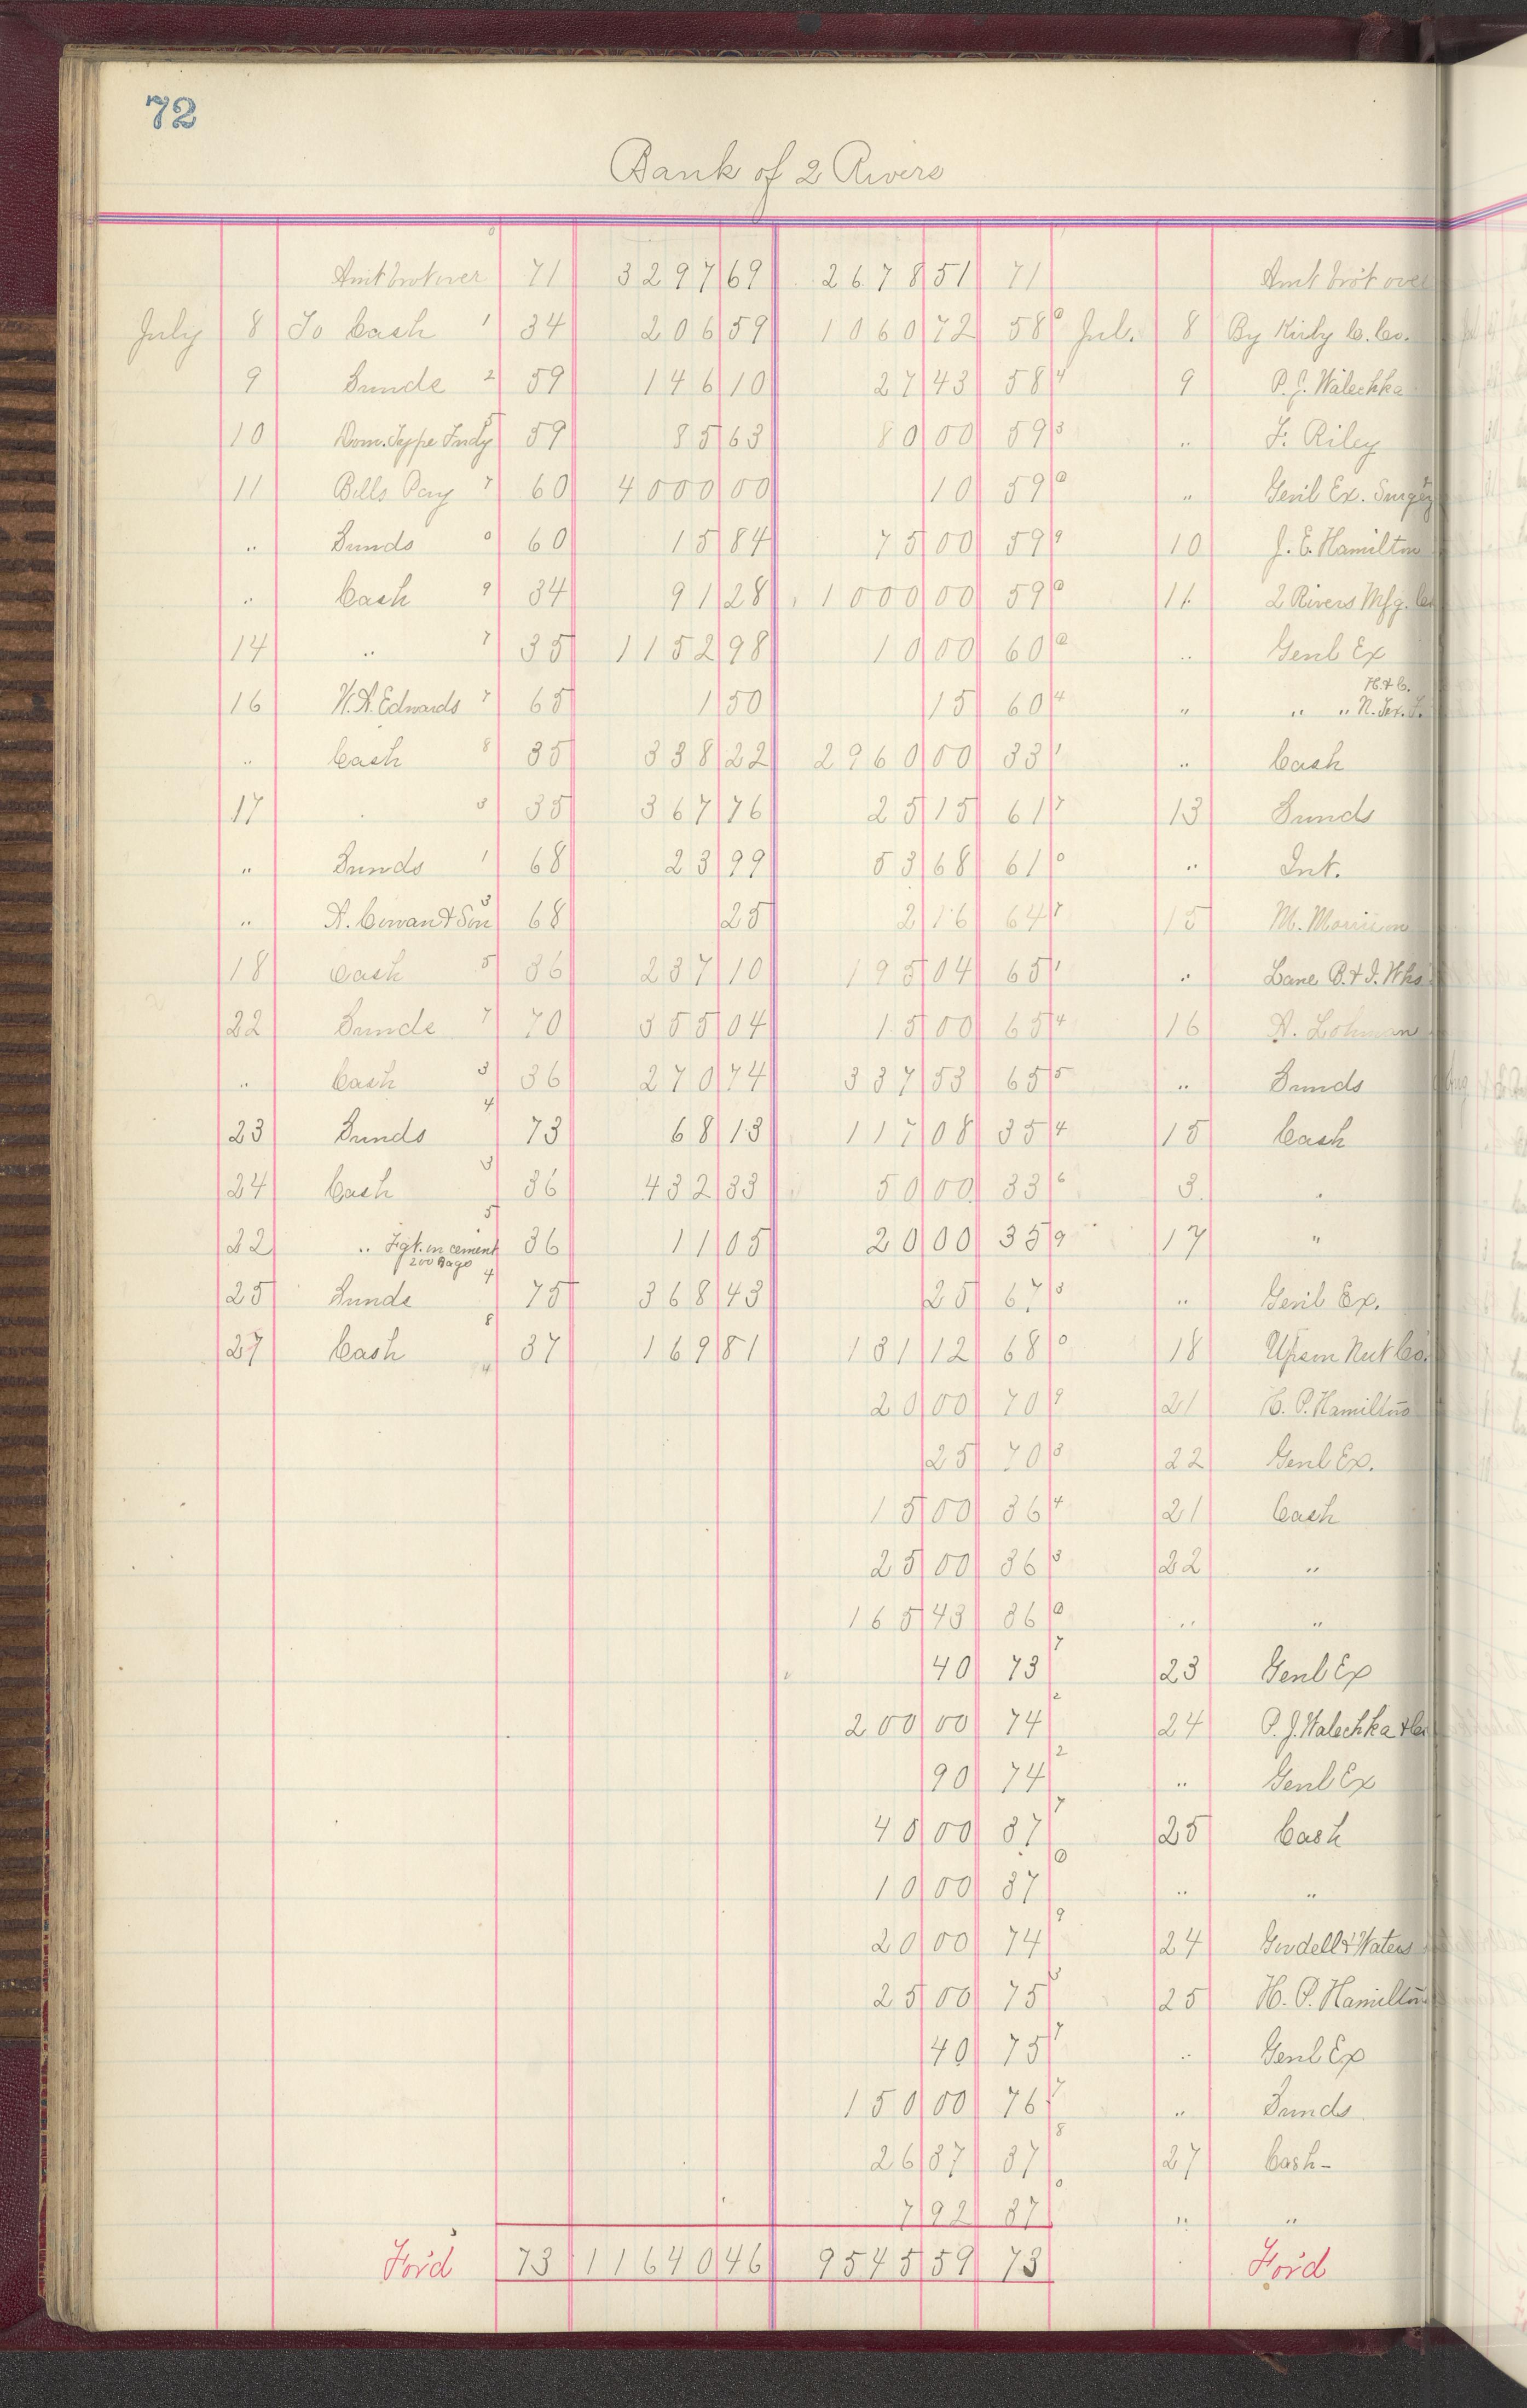 72
Bank of 2 Rivers
Amt brot over 71 3297 69 2678 51 71 Amt brot over
July 8 To Cash 1 34 206 59 1060 72 58 0 Jul. 8 By Kirby C. Co.
9 Sunds 2 59 146 10 27 43 58 4 9 P. J. Walechka
10 Dom. Type Fndy 5 59 85 63 80 00 59 3 " F. Riley
11 Bills Pay 7 60 4000 00 10 59 0 " Genl Ex.
" Sunds 0 60 15 84 75 00 59 9 10 J. E. Hamilton
" Cash 9 34 91 28 1000 00 59 0 11 2 Rivers Mfg. Co
14 " 7 35 1152 98 10 00 60 0 " Genl Ex
16 W. A. Edwards 7 65 1 50 15 60 4 " " " H. & C. N. Tex. T.
" Cash 8 35 338 22 2960 00 33 1 " Cash
17 3 35 367 76 25 15 61 7 13 Sunds
" Sunds 1 68 23 99 53 68 61 0 " Int.
" A. Cowan & Son 3 68 25 2 16 64 7 15 M. Morrison
18 Cash 5 36 237 10 195 04 65 1 " Lane B. & I. Wks
22 Sunds 7 70 355 04 15 00 65 4 16 A. Lohman
" Cash 3 36 270 74 337 53 65 5 " Sunds
23 Sunds 4 73 68 13 117 08 35 4 15 Cash
24 Cash 3 36 432 33 50 00 33 6 3 "
22 " Fgt. on cement 200 Bags 5 36 11 05 20 00 35 9 17 "
25 Sunds 4 75 368 43 25 67 3 " Genl Ex.
27 Cash 8 37 169 81 131 12 68 0 18 Upson Nut Co.
20 00 70 9 21 H. P. Hamilton
25 70 3 22 Genl Ex.
15 00 36 4 21 Cash
25 00 36 3 22 "
165 43 36 0 " "
40 73 7 23 Genl Ex
200 00 74 2 24 P. J. Walechka & Co
90 74 2 " Genl Ex
40 00 37 7 25 Cash
10 00 37 0 " "
20 00 74 9 24 Goodell & Waters
25 00 75 3 25 H. P. Hamilton
40 75 7 " Genl Ex
150 00 76 7 " Sunds
26 37 37 8 27 Cash -
7 92 37 0 " "
For'd 73 11640 46 9545 59 73 For'd